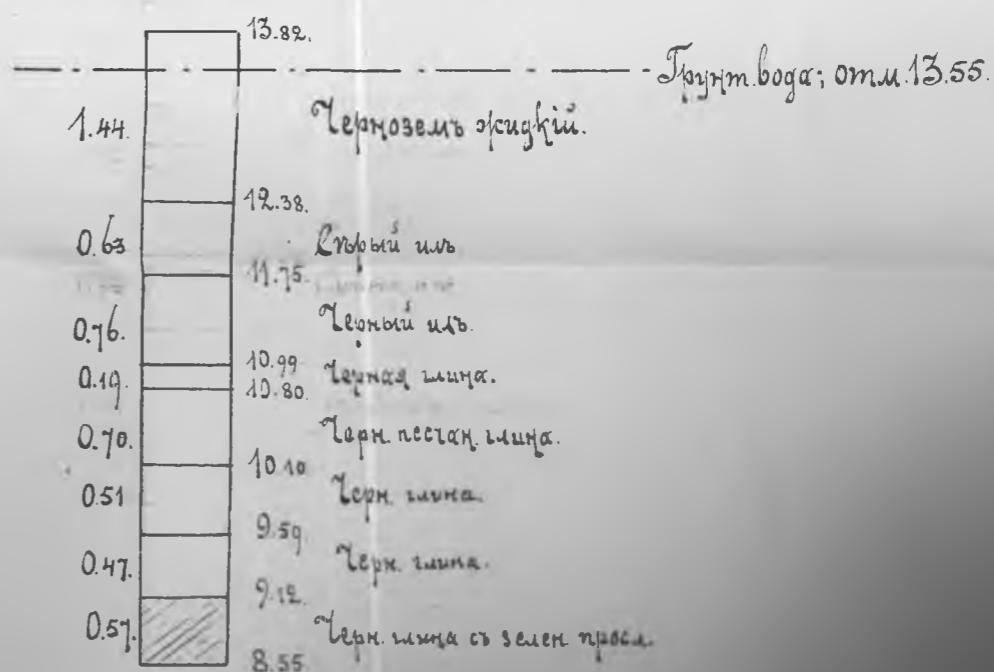 13.82.
Грунт. вода; отм. 13.55.
1.44. Черноземъ жидкій.
12.38.
0.63 Сѣрый илъ
11.75.
0.76. Черный илъ.
10.99
0.19. Черная глина.
10.80.
0.70. Черн. песчан. глина.
10.10
0.51 Черн. глина.
9.59.
0.47. Черн. глина.
9.12.
0.57. Черн. глина съ зелен просл.
8.55